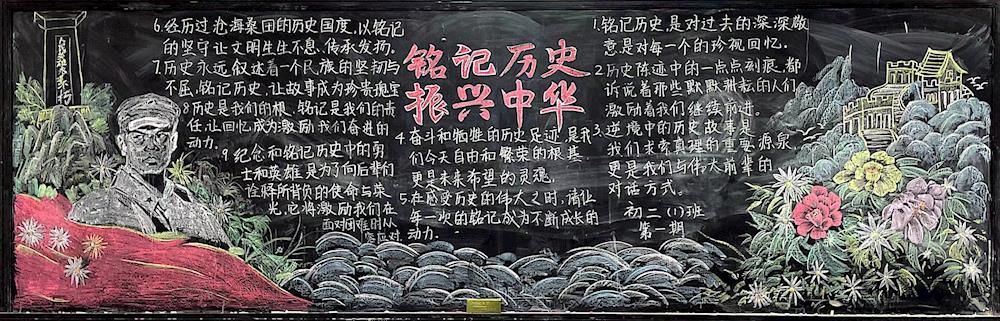 铭记历史
振兴中华
1.铭记历史,是对过去的深深敬
意是对每一个的珍视回忆.
2.历史陈迹中的一点点刻痕,都
诉说着那些默默耕耘的人们
激励着我们继续前进.
3.逆境中的历史故事是
我们求索真理的重要源泉,
更是我们与伟大前辈的
对话方式.
初二(1)班
第一期
4.奋斗和牺牲的历史足迹,是我
们今天自由和繁荣的根基
更是未来希望的灵魂.
5.在感受历史的伟大之时,请让
每一次的铭记成为不断成长的
动力.
6.经历过沧海桑田的历史国度,以铭记
的坚守让文明生生不息,传承发扬.
7.历史永远叙述着一个民族的坚韧与
不屈,铭记历史,让故事成为珍贵瑰宝
8.历史是我们的根,铭记是我们的责
任,让回忆成为激励我们奋进的
动力.
9.纪念和铭记历史中的勇
士和英雄是为了向后辈们
诠释所肩负的使命与荣
光,它将激励我们在
面对困难时从
容应对